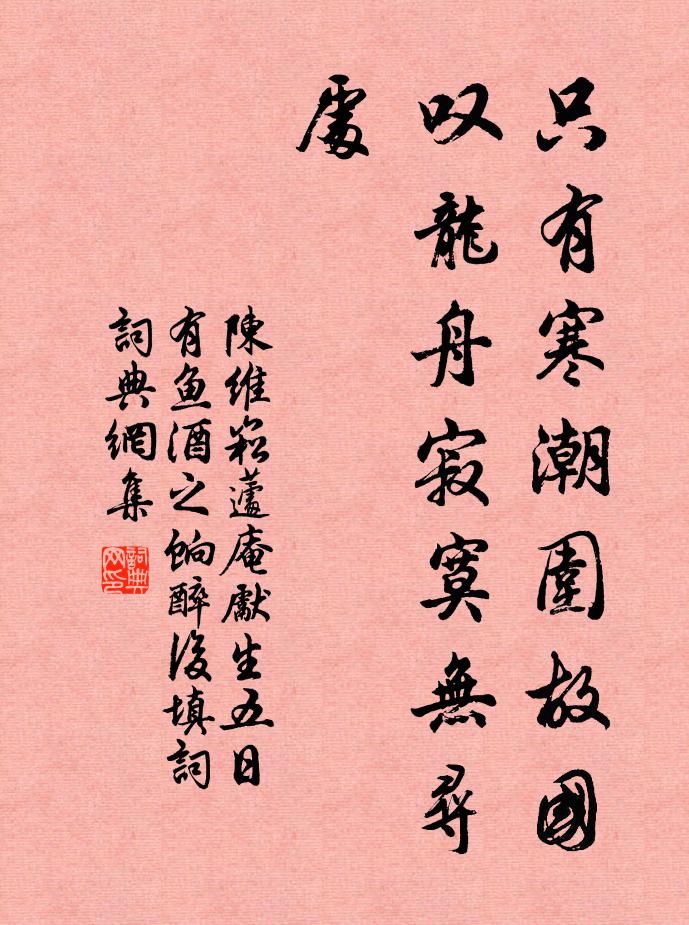 只有寒潮圍故國
叹龍舟寂寞無尋
處
陳維崧蘆庵獻生五日
有魚酒之餉醉後填詞
詞典網集
詞典网印